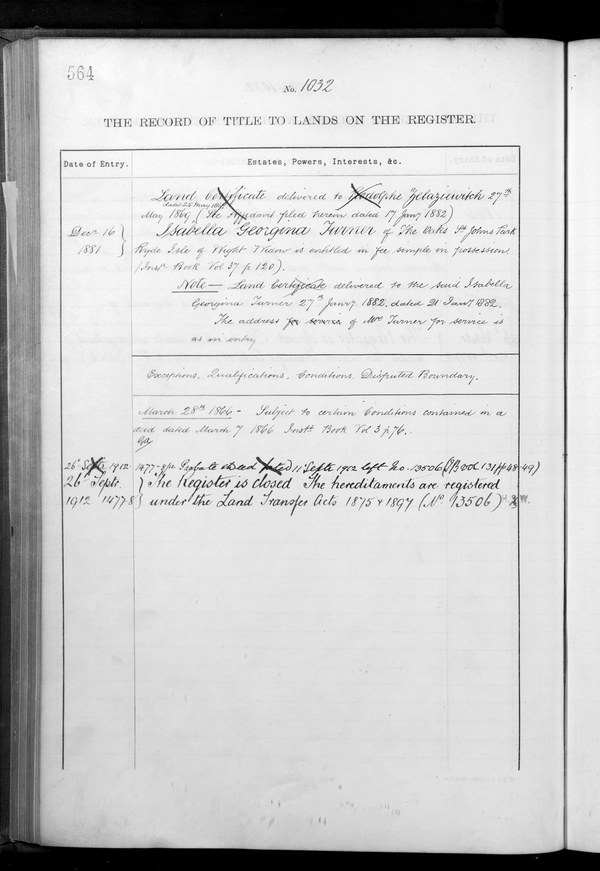 564
No. 1032
THE RECORD OF TITLE TO LANDS ON THE REGISTER.
Date of Entry.
Estates, Powers, Interests, &c.
Land Certificate delivered to Rodolphe Zelaziewitch 27th
dated 25 May 1869
May 1869 (See Affidavit filed herein dated 17 Jany 1882)
Decr 16 1881 } Isabella Georgina Turner of The Oaks St Johns Park
Ryde Isle of Wight Widow is entitled in fee simple in possession
(Instt Book Vol 37 p 120).
Note — Land Certificate delivered to the said Isabella
Georgina Turner 27th Jany 1882, dated 21 Jany 1882.
The address for service of Mrs Turner for service is
as in entry
Exceptions, Qualifications, Conditions, Disputed Boundary.
March 28th 1866 - Subject to certain Conditions contained in a
deed dated March 7 1866 Instt Book Vol 3 p 76.
26 Septr 1912 1477-8/12 Probate dated 11 Septr 1902 left No. 13506 (Book 131 pp 48-49)
26 Septr. 1912 1477-8 } The Register is closed The hereditaments are registered
under the Land Transfer Acts 1875 & 1897 (No. 13506)